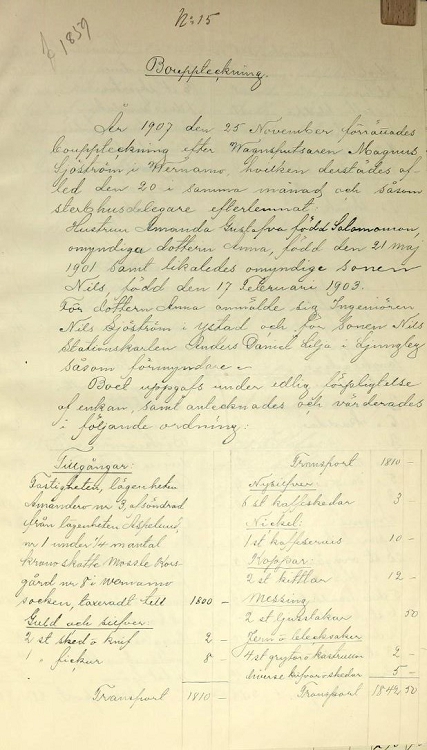 f 1859
No 15
Bouppteckning.
År 1907 den 25 November förrättades
bouppteckning efter Wagnsputsaren Magnus
Sjöström i Wernamo, hvilken derstädes af-
led den 20 i samma månad och såsom
sterbhusdelegare efterlemnat:
Hustrun Amanda Gustafva född Salomonson,
omyndiga dottern Anna, född den 21 maj
1901 samt likaledes omyndige sonen
Nils, född den 17 Februari 1903.
För dottern Anna anmälde sig Ingeniören
Nils Sjöström i Ystad och för sonen Nils
Stationskarlen Anders Daniel Lilja i Ljungby
såsom förmyndare.
Boet uppgafs under edlig förpligtelse
af enkan, samt antecknades och värderades
i följande ordning:
Tillgångar:
Fastigheten, lägenheten
Amandero nr 3, afsöndrad
från lägenheten
nr 1 under 1/4 mantal
krono skatte Mossle Kors-
gård nr 8 i Wernamo
socken, taxeradt till 1800 –
Guld och silfver:
2 st sked o knif 2 –
1 " fickur 8 –
Transport 1810 –
Transport 1810 –
Nysilfver:
6 st kaffeskedar 3 –
Nickel:
1 st kaffeservis 10 –
Koppar:
2 st kittlar 12 –
Messing
2 st ljusstakar 50
Jern o blecksaker
4 st grytor o kastruller 2 –
diverse 5 –
Transport 1842 50